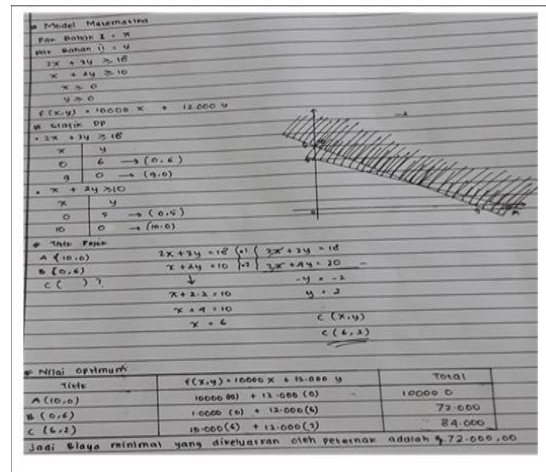 Model Matematika
Bahan I = x
Bahan II = y
2x + 3y ≥ 18
x + 2y ≥ 10
x ≥ 0
y ≥ 0
f(x,y) = 10000 x + 12.000 y
Grafik DP
• 2x + 3y ≥ 18
x | y
0 | 6 → (0,6)
9 | 0 → (9,0)
• x + 2y ≥ 10
x | y
0 | 5 → (0,5)
10 | 0 → (10,0)
Titik Pojok
A (10,0)
B (0,6)
C ( ) ?
2x + 3y = 18 |x1| 2x + 3y = 18
x + 2y = 10 |x2| 2x + 4y = 20 −
↓
-y = -2
x + 2.2 = 10
y = 2
x + 4 = 10
x = 6
C (x,y)
C (6,2)
Nilai Optimum
Titik | f(x,y) = 10000 x + 12.000 y | Total
A (10,0) | + 12.000 (0) | 10000 0
B (0,6) | (0) + 12.000 (6) | 72.000
C (6,2) | 10.000 (6) + 12.000 (2) | 84.000
Jadi Biaya minimal yang dikeluarkan oleh peternak adalah 72.000,00